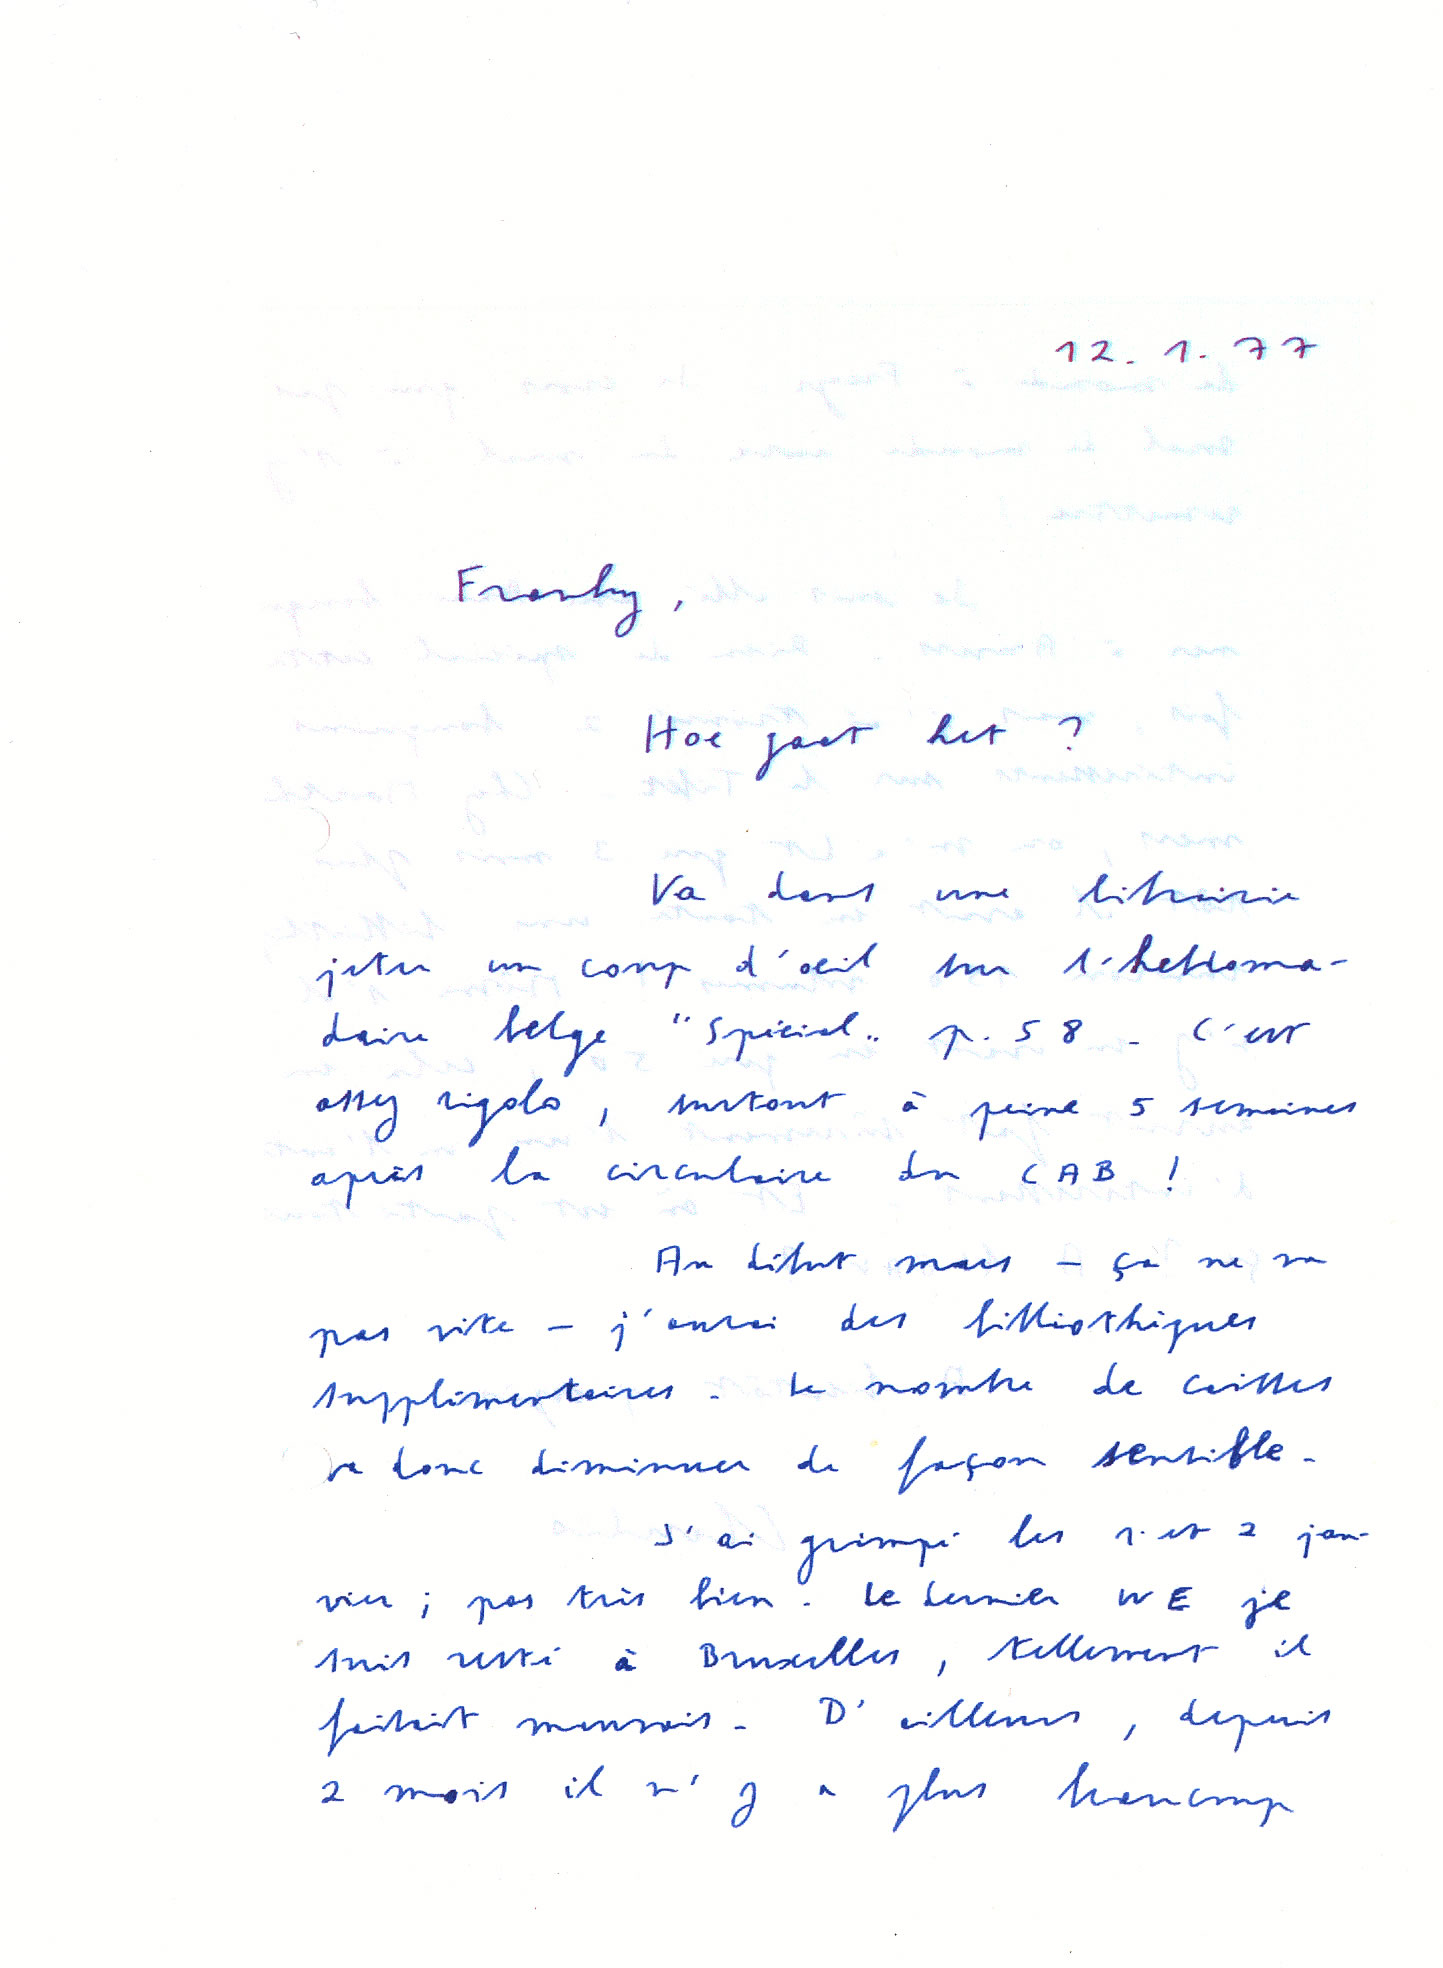 12.1.77
Franky,
Hoe gaat het ?
Va dans une librairie
jeter un coup d'oeil sur l'hebdoma-
daire belge "Spécial" p. 58 - C'est
assez rigolo, surtout à peine 5 semaines
après la circulaire du CAB !
Au début mars - ça ne va
pas vite - j'aurai des bibliothèques
supplémentaires - Le nombre de caisses
va donc diminuer de façon sensible -
J'ai grimpé les 1 et 2 jan-
vier ; pas très bien - Le dernier WE je
suis resté à Bruxelles, tellement il
faisait mauvais - D'ailleurs, depuis
2 mois il n'y a plus beaucoup